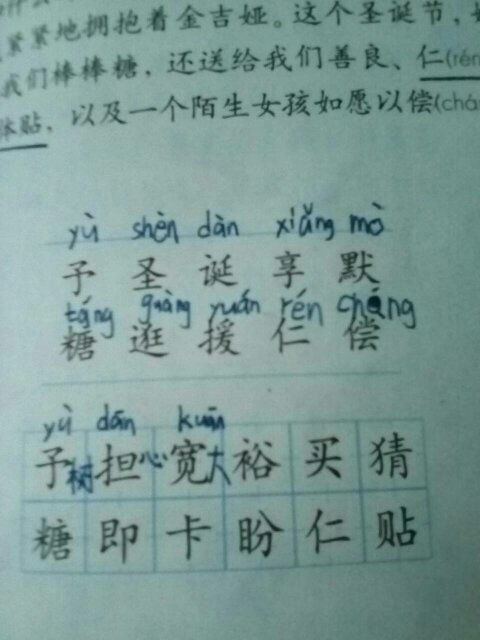 紧紧地拥抱着金吉娅。这个圣诞节,
我们棒棒糖,还送给我们善良、仁(rén
体贴,以及一个陌生女孩如愿以偿(chá
yù shèn dàn xiǎng mò
予 圣 诞 享 默
táng guàng yuán rén cháng
糖 逛 援 仁 偿
yù dān kuān
予树 担心 宽大 裕 买 猜
糖 即 卡 盼 仁 贴